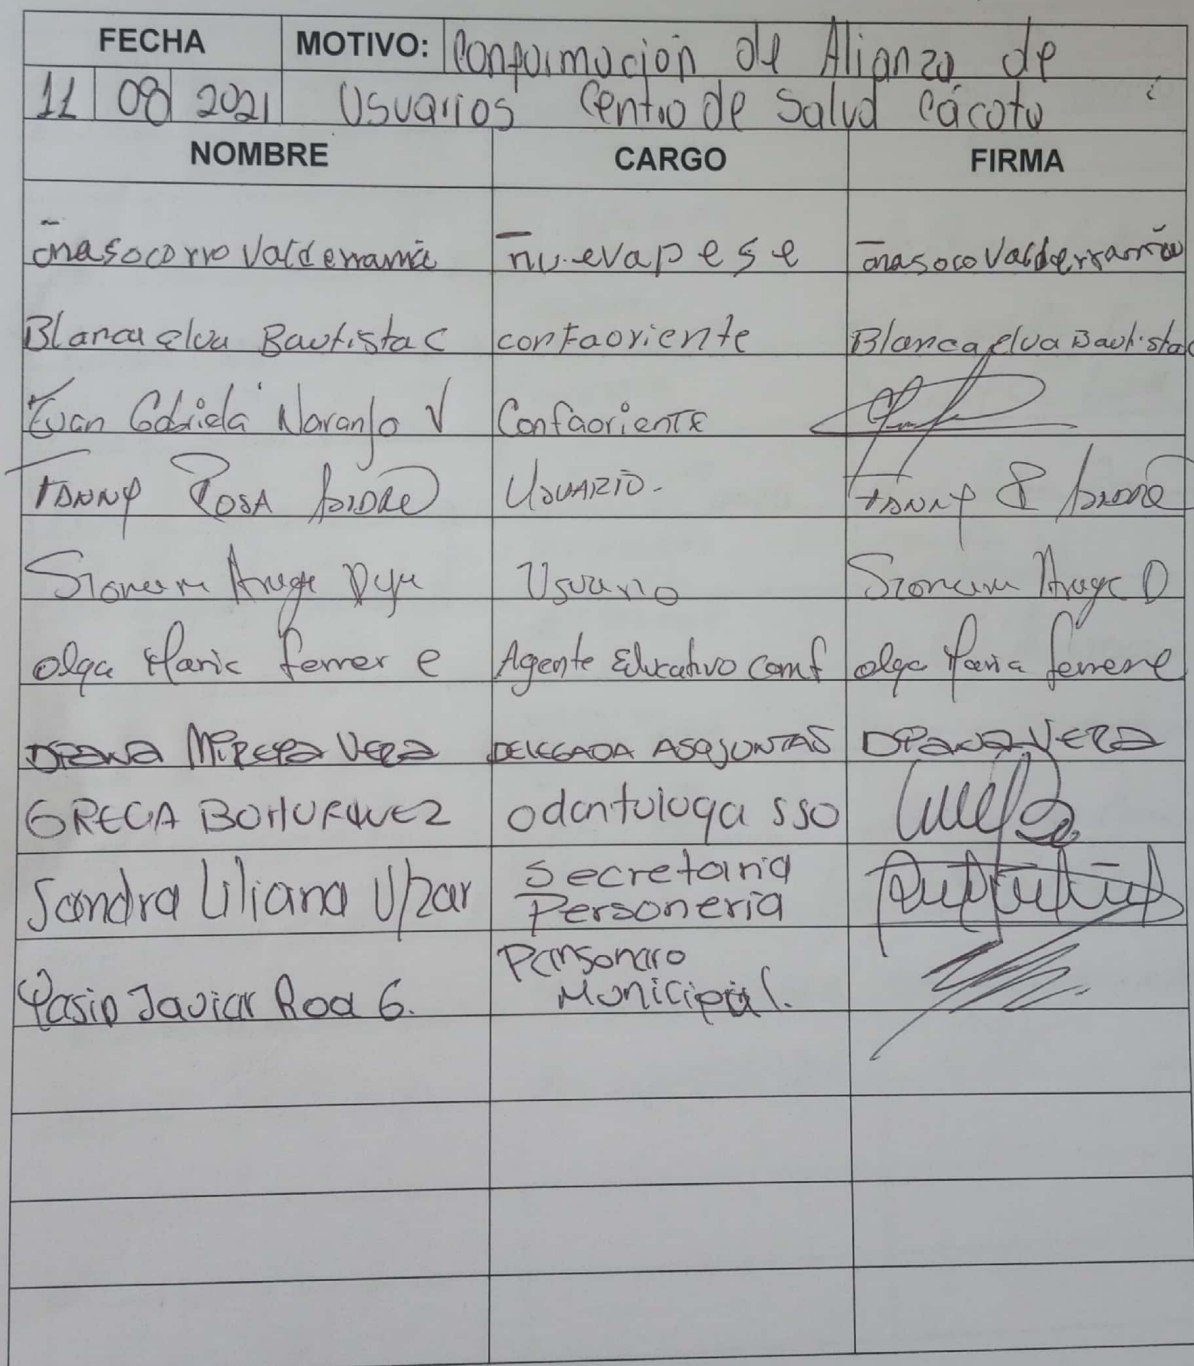 FECHA MOTIVO: Conformación de Alianza de
11 08 2021 Usuarios Centro de Salud Cácota
NOMBRE CARGO FIRMA
anasocorro Valderrama nuevapese anasoco Valderrama
Blanca elva Bautista C confaoriente Blanca elva Bautista C
Naranjo V Confaoriente
Fanny Rosa Usuario. Fanny R
Usuario
olga Maria ferrer e Agente Educativo Comf olga Maria ferrer e
DIANA MIREYA VERA DELEGADA ASOJUNTAS DIANA VERA
GRECIA BOHORQUEZ odontologa SSO
Sandra Liliana Secretaria
Personeria
Personero
Yasid Javier Roa G. Municipal.